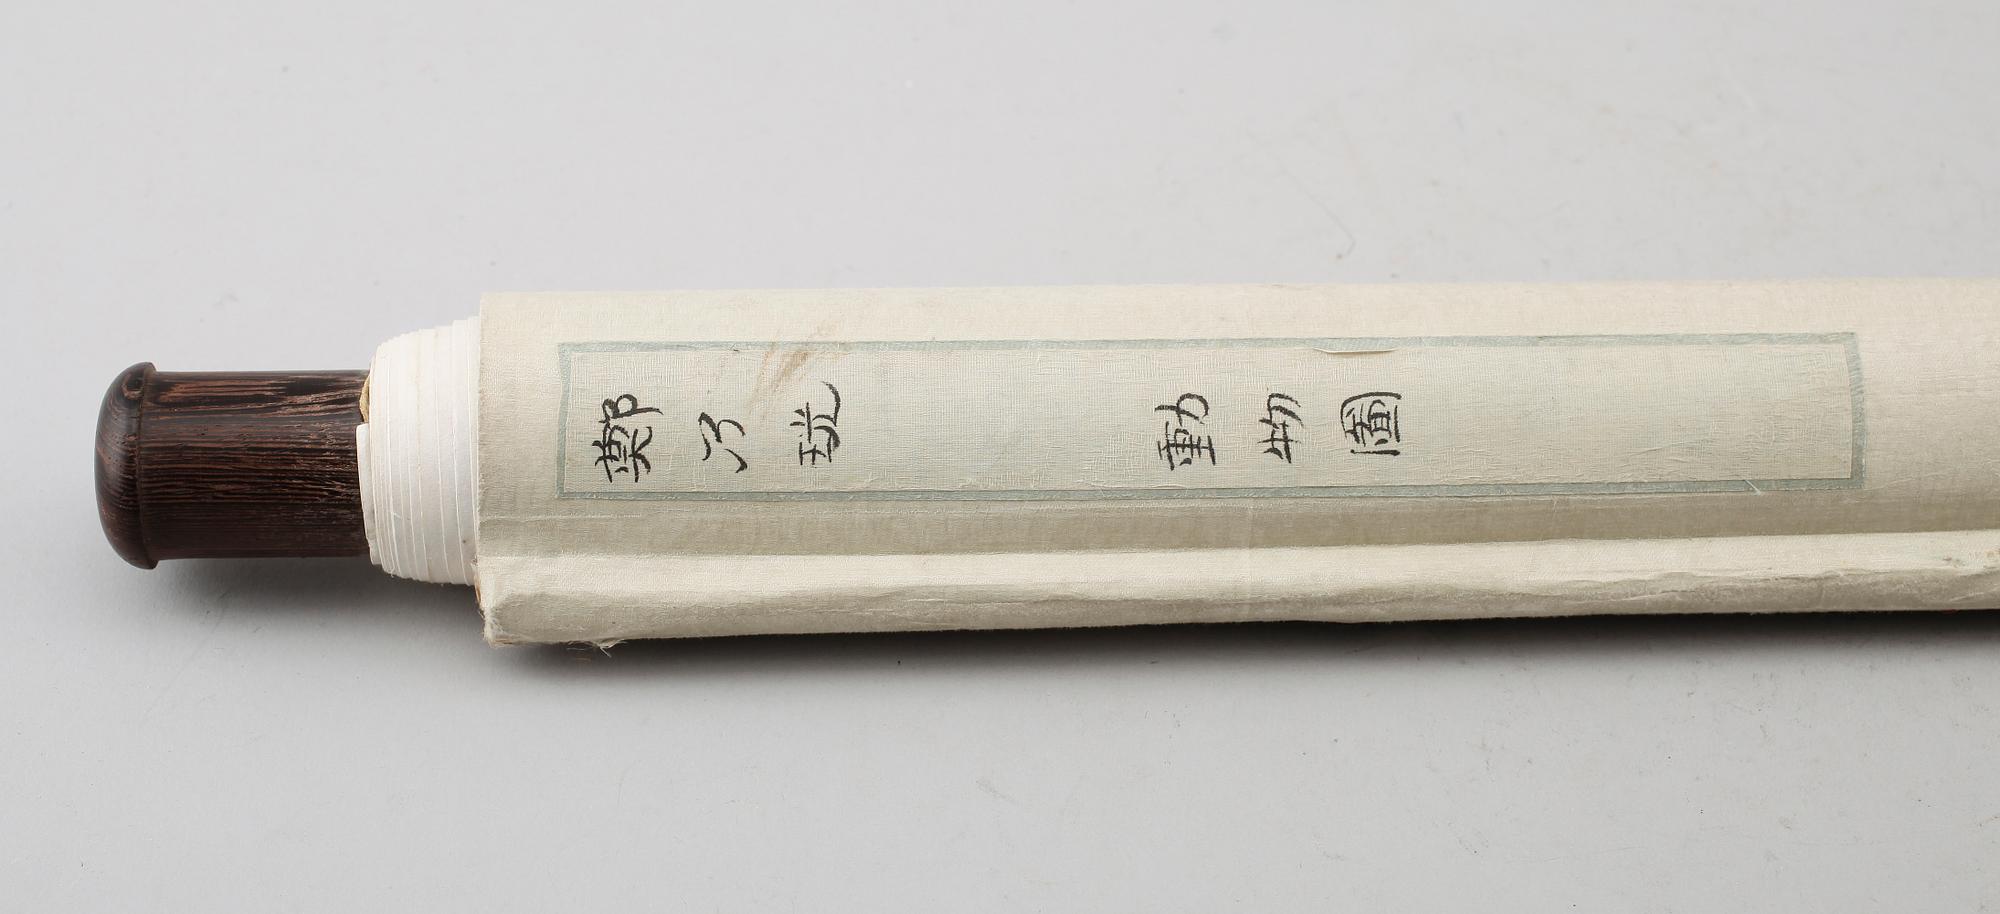 鄭乃珖 動物圖